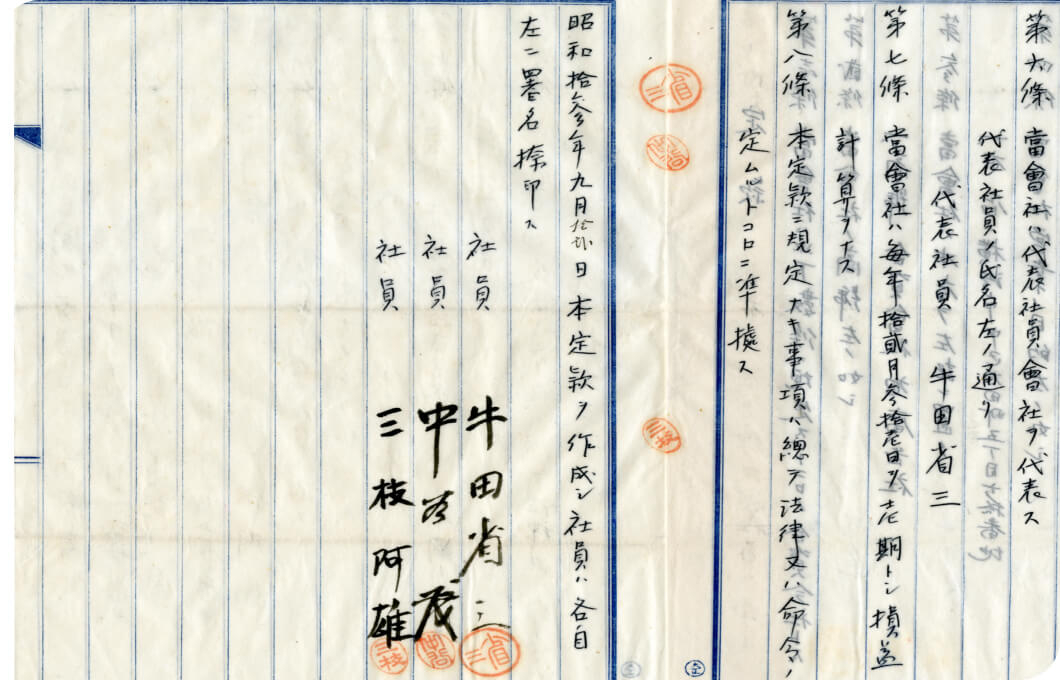 第六條 當會社ハ代表社員會社ヲ代表ス
代表社員ノ氏名左ノ通リ
代表社員 牛田省三
第七條 當會社ハ每年拾貳月參拾壱日ヲ壱期トシ損益
計算ヲナス
第八條 本定款ニ規定ナキ事項ハ總テ法律又ハ命令ノ
定ムルトコロニ準據ス
昭和拾參年九月拾弐日本定款ヲ作成シ社員ハ各自
左ニ署名捺印ス
社員 牛田省三
社員 中谷茂
社員 三枝阿雄
省三
中谷
三枝
省三
中谷
三枝